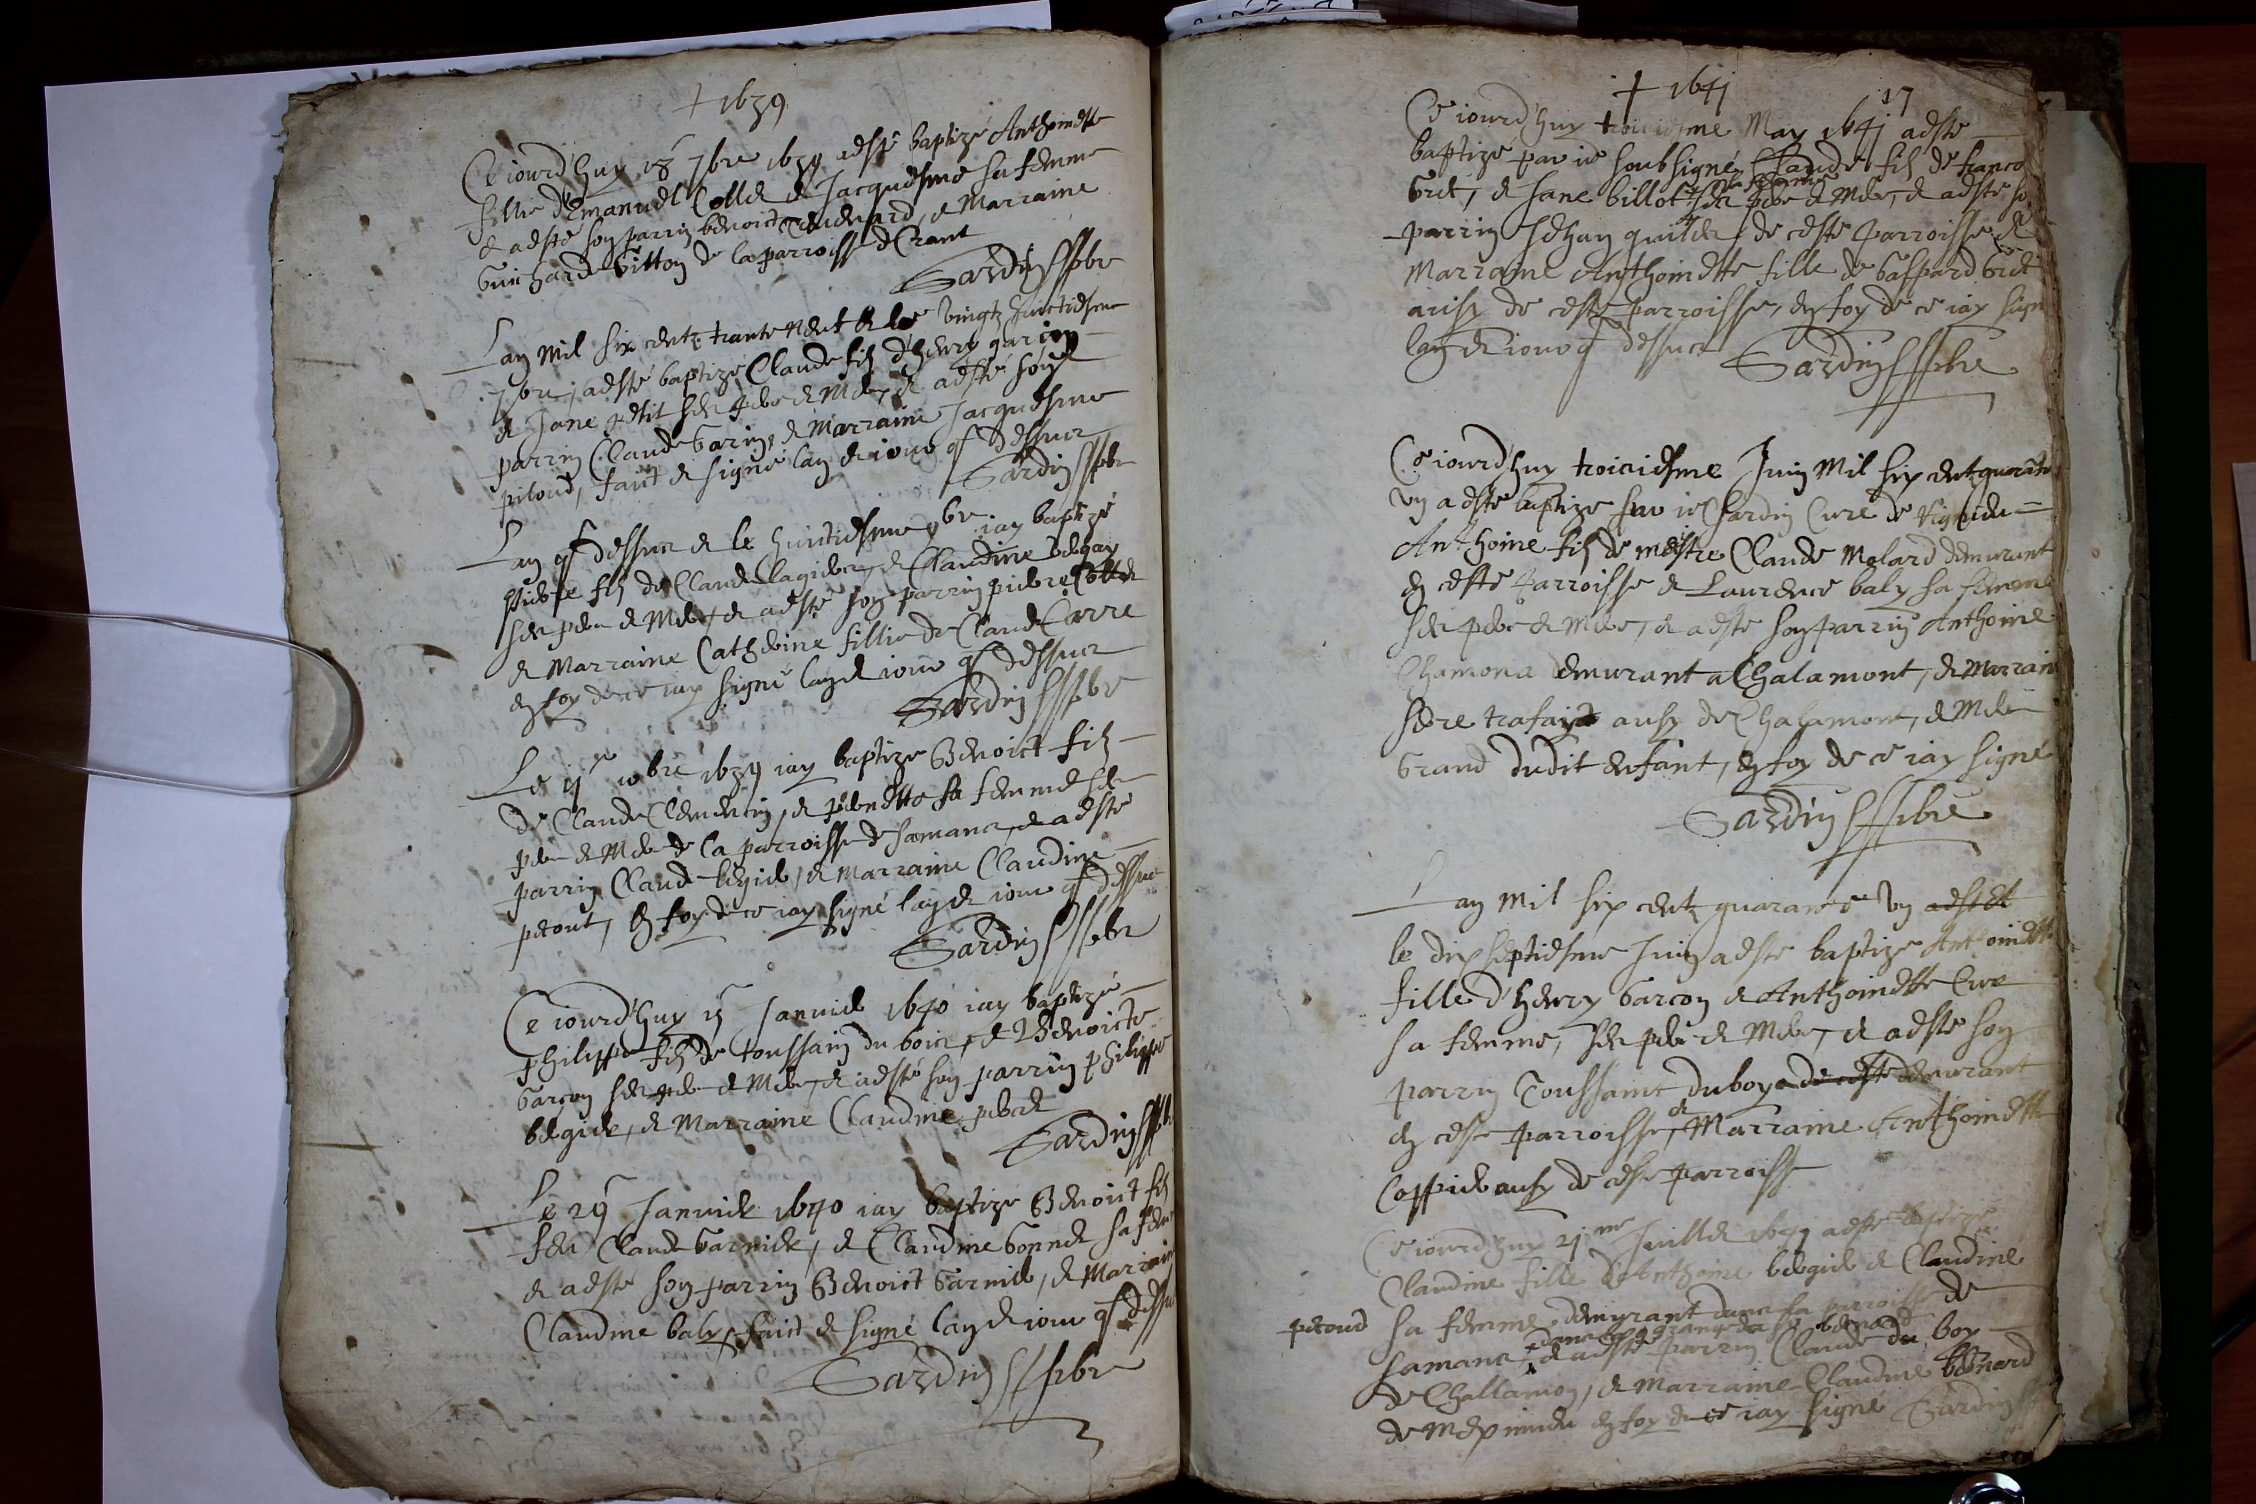 + 1639
Ce iourd'huy 18 7bre 1639 a esté baptizé Anthoinette
fille d'Emanuel Collet et Jacquesme sa femme
et a esté son parrin benoict Reverard, et Marraine
Guicharde Gitton de la parroisse de Crant
Sardin pbre
Lan mil six centz trante neuf et le vingtz huictiesme
7bre, a esté baptizé Claude filz d'henry garin
et Jane petit ses pere et Mere, et a esté son
parrin Claude Garin, et Marraine Jacquesme
pitoud, faict et signé lan et iour q dessus
Sardin pbre
Lan q dessus et le huictiesme 9bre iay baptizé
pierre filz de Claude lagier, et Claudine
ses pere et Mere, et a esté son parrin pierre Collet
et Marraine Catherine fillie de Claude Carre
en foy de ce iay signé lan et iour q dessus
Sardin pbre
Le 10bre 1639 iay baptize Benoict filz
de Claude Clementin, et pernette sa femme ses
pere et Mere de la parroisse de Samans, et a esté
parrin Claude begier, et Marraine Claudine
peront, en foy de ce iay signé lan et iour q dessus
Sardin pbre
Ce iourd'huy Janvier 1640 iay baptizé
philippe filz de toussain du bois, et Benoicte
Garson ses pere et Mere, et a esté son parrin philippe
begier, et Marraine Claudine
Sardin pbre
Le 29 Janvier 1640 iay baptize Benoict filz
feu Claude Garnier, et Claudine Gonnet sa feme
et a esté son parrin Benoict Garnier, et Marraine
Claudine baly, faict et signé lan et iour q dessus
Sardin pbre
+ 1641
17
Ce iourd'huy troiciesme May 1641 a esté
baptizé par ie soubsigné Claude filz de franco
Gret, et Jane billot sa femme ses pere et Mere, et a esté so
parrin Jehan de ceste parroisse et
Marraine Anthoinette fille de Gaspard Gret
ausy de ceste parroisse, en foy de ce iay sign
lan et iour q dessus Sardin pbre
Ce iourd'huy troiciesme Juin Mil six cent quarāte
un a esté baptize par ie Sardin Curé de
Anthoine filz de mestre Claude Molard demurant
en ceste parroisse et Laurence baly sa femme
ses pere et Mere, et a esté son parrin Anthoine
Chamona demurant a Chalamont, et Marrain
trafay ausy de Chalamont, et Mere
Grand dudit enfant, en foy de ce iay signé
Sardin pbre
Lan mil six centz quarante un a esté et
le dix septiesme Juin a esté baptize Anthoinette
fille d'henry Garson et Anthoinette
sa femme, ses pere et Mere, et a esté son
parrin Toussainct duboys de ceste demurant
en ceste parroisse, et Marraine Anthoinette
Coppier ausy de ceste parroisse
Ce iourd'huy 21me Juillet 1641 a esté baptizé
Claudine fille d'Anthoine begier et Claudine
peroud sa femme demurant dans la parroisse de
Samans dans la grange de bernard
et a esté parrin Claude du boy
de Challamon, et Marraine Claudine bernard
de Meximieu en foy de ce iay signé Sardin